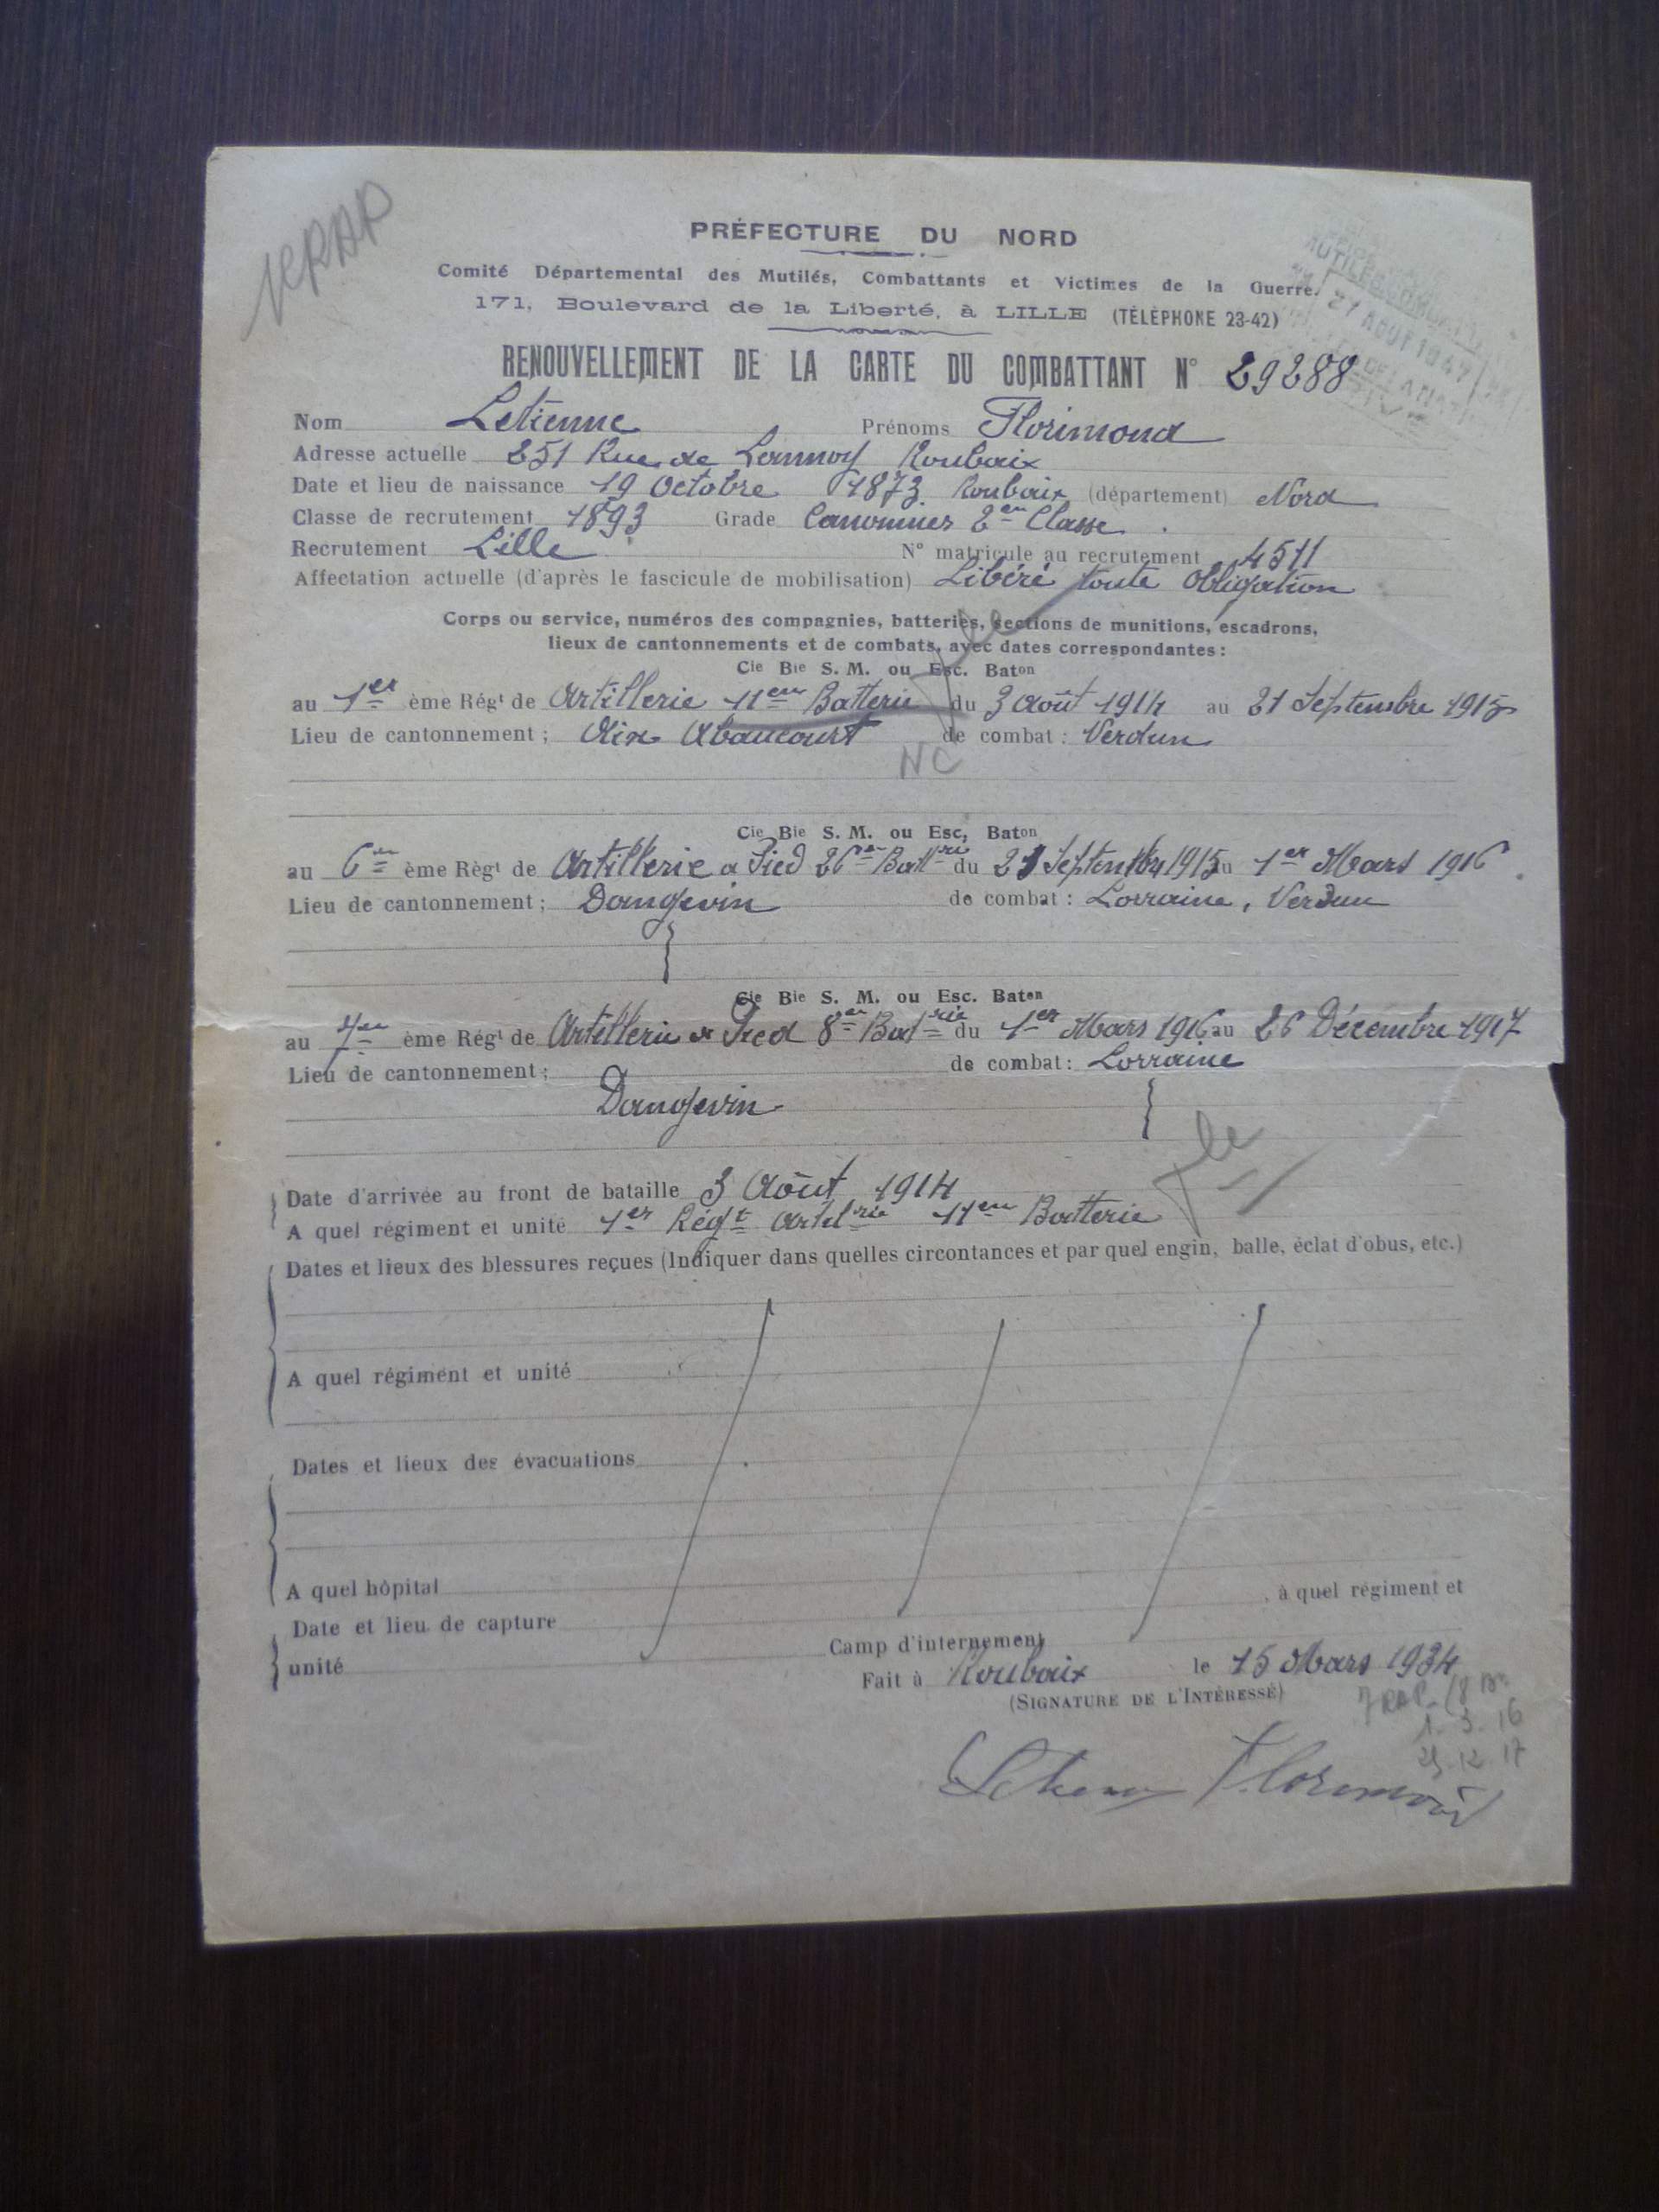 PRÉFECTURE DU NORD
Comité Départemental des Mutilés, Combattants et Victimes de la Guerre.
171, Boulevard de la Liberté, à LILLE (TÉLÉPHONE 23-42)
21 AOUT 1947
RENOUVELLEMENT DE LA CARTE DU COMBATTANT N° 29288
Nom Letienne Prénoms Florimond
Adresse actuelle 251 Rue de Lannoy Roubaix
Date et lieu de naissance 19 Octobre 1873 Roubaix (département) Nord
Classe de recrutement 1893 Grade Canonnier 2em Classe.
Recrutement Lille N° matricule au recrutement 4511
Affectation actuelle (d'après le fascicule de mobilisation) Libéré toute Obligation
Corps ou service, numéros des compagnies, batteries, sections de munitions, escadrons,
lieux de cantonnements et de combats, avec dates correspondantes :
Cie Bie S. M. ou Esc. Baton
au 1er ème Régt de Artillerie 11em Batterie du 3 Août 1914 au 21 Septembre 1915
Lieu de cantonnement ; de combat : Verdun
NC
Cie Bie S. M. ou Esc, Baton
au 6em ème Règt de Artillerie a Pied 26em Battrie du 21 Septembre 1915 au 1er Mars 1916.
Lieu de cantonnement ; Dangevin de combat : Lorraine, Verdun
Cie Bie S. M. ou Esc. Baton
au 7em ème Régt de Artillerie a Pied 8em Batrie du 1er Mars 1916 au 26 Décembre 1917
Lieu de cantonnement ; de combat : Lorraine
Dangevin
Date d'arrivée au front de bataille 3 Août 1914
A quel régiment et unité 1er Régt Artelrie 11em Batterie
Dates et lieux des blessures reçues (Indiquer dans quelles circontances et par quel engin, balle, éclat d'obus, etc.)
A quel régiment et unité
Dates et lieux des évacuations
A quel hôpital , à quel régiment et
Date et lieu de capture
unité Camp d'internement
Fait à Roubaix le 15 Mars 1934
(SIGNATURE DE L'INTÉRESSÉ)
1. 3. 16
Florimond